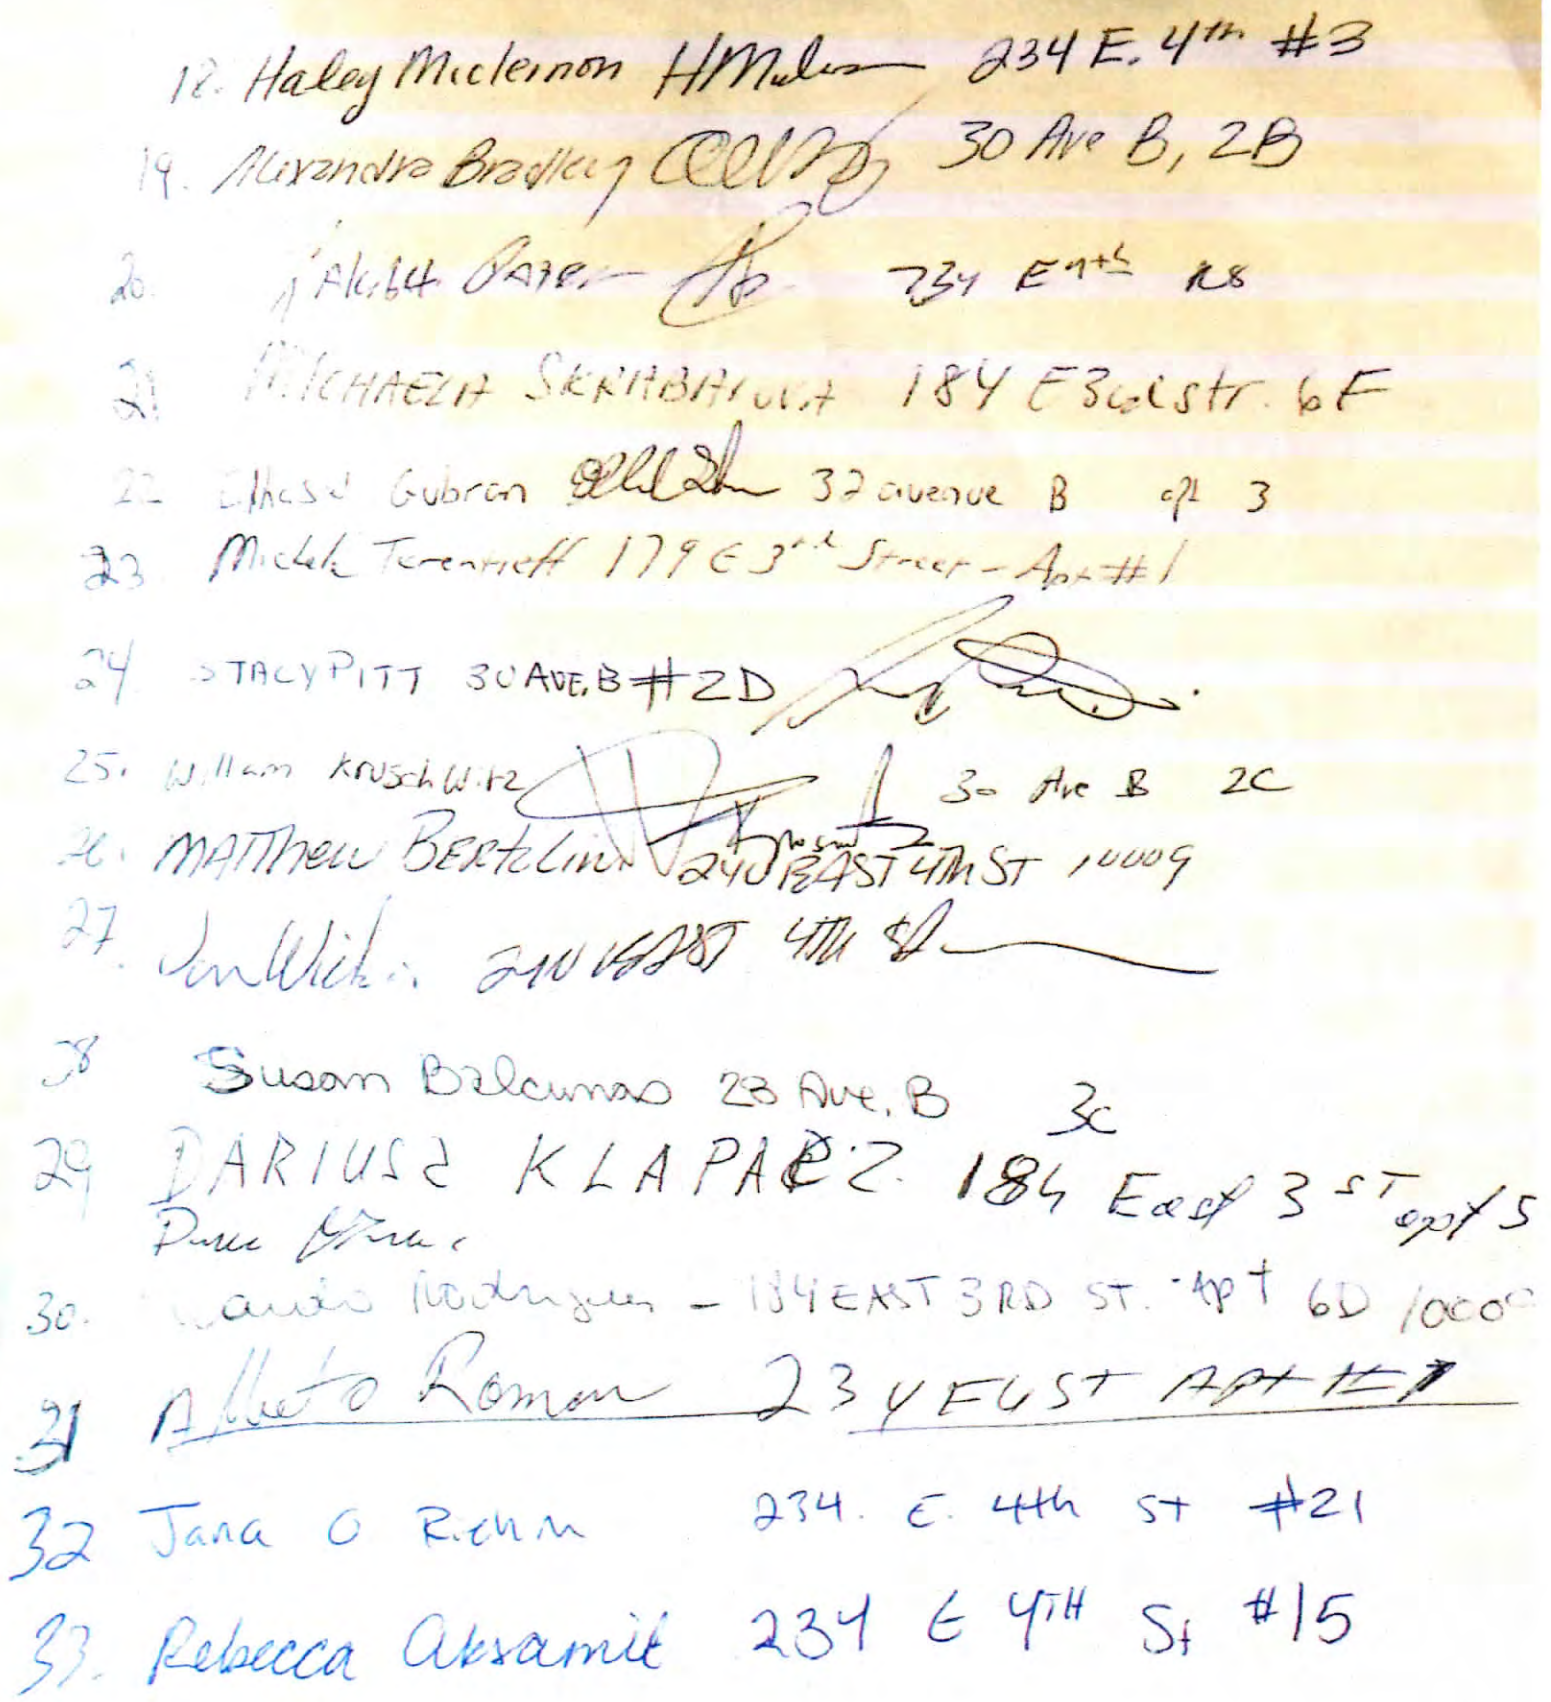 18. Haley McLernon 234 E. 4th #3
19. Alexandra Bradley 30 Ave B, 2B
20. 234 E 4th
21 MICHAELA 184 E 3rd str. 6F
22 Gubran 32 avenue B apt 3
23 Terentieff 179 E 3rd Street - Apt #1
24 STACY PITT 30 AVE. B #2D
25. William Kruschwitz 30 Ave B 2C
26. MATTHEW 240 EAST 4TH ST 10009
27. 240 EAST 4TH St
28 Susan Balcunas 28 Ave. B 3C
29 DARIUSZ 184 East 3 ST apt 5
30. Rodriguez - 184 EAST 3RD ST. Apt 6D
31 Alberto Roman 234 E 4 ST APT #
32 Jana O Riehm 234. E. 4th St #21
33. Rebecca Aksamit 234 E 4TH St #15